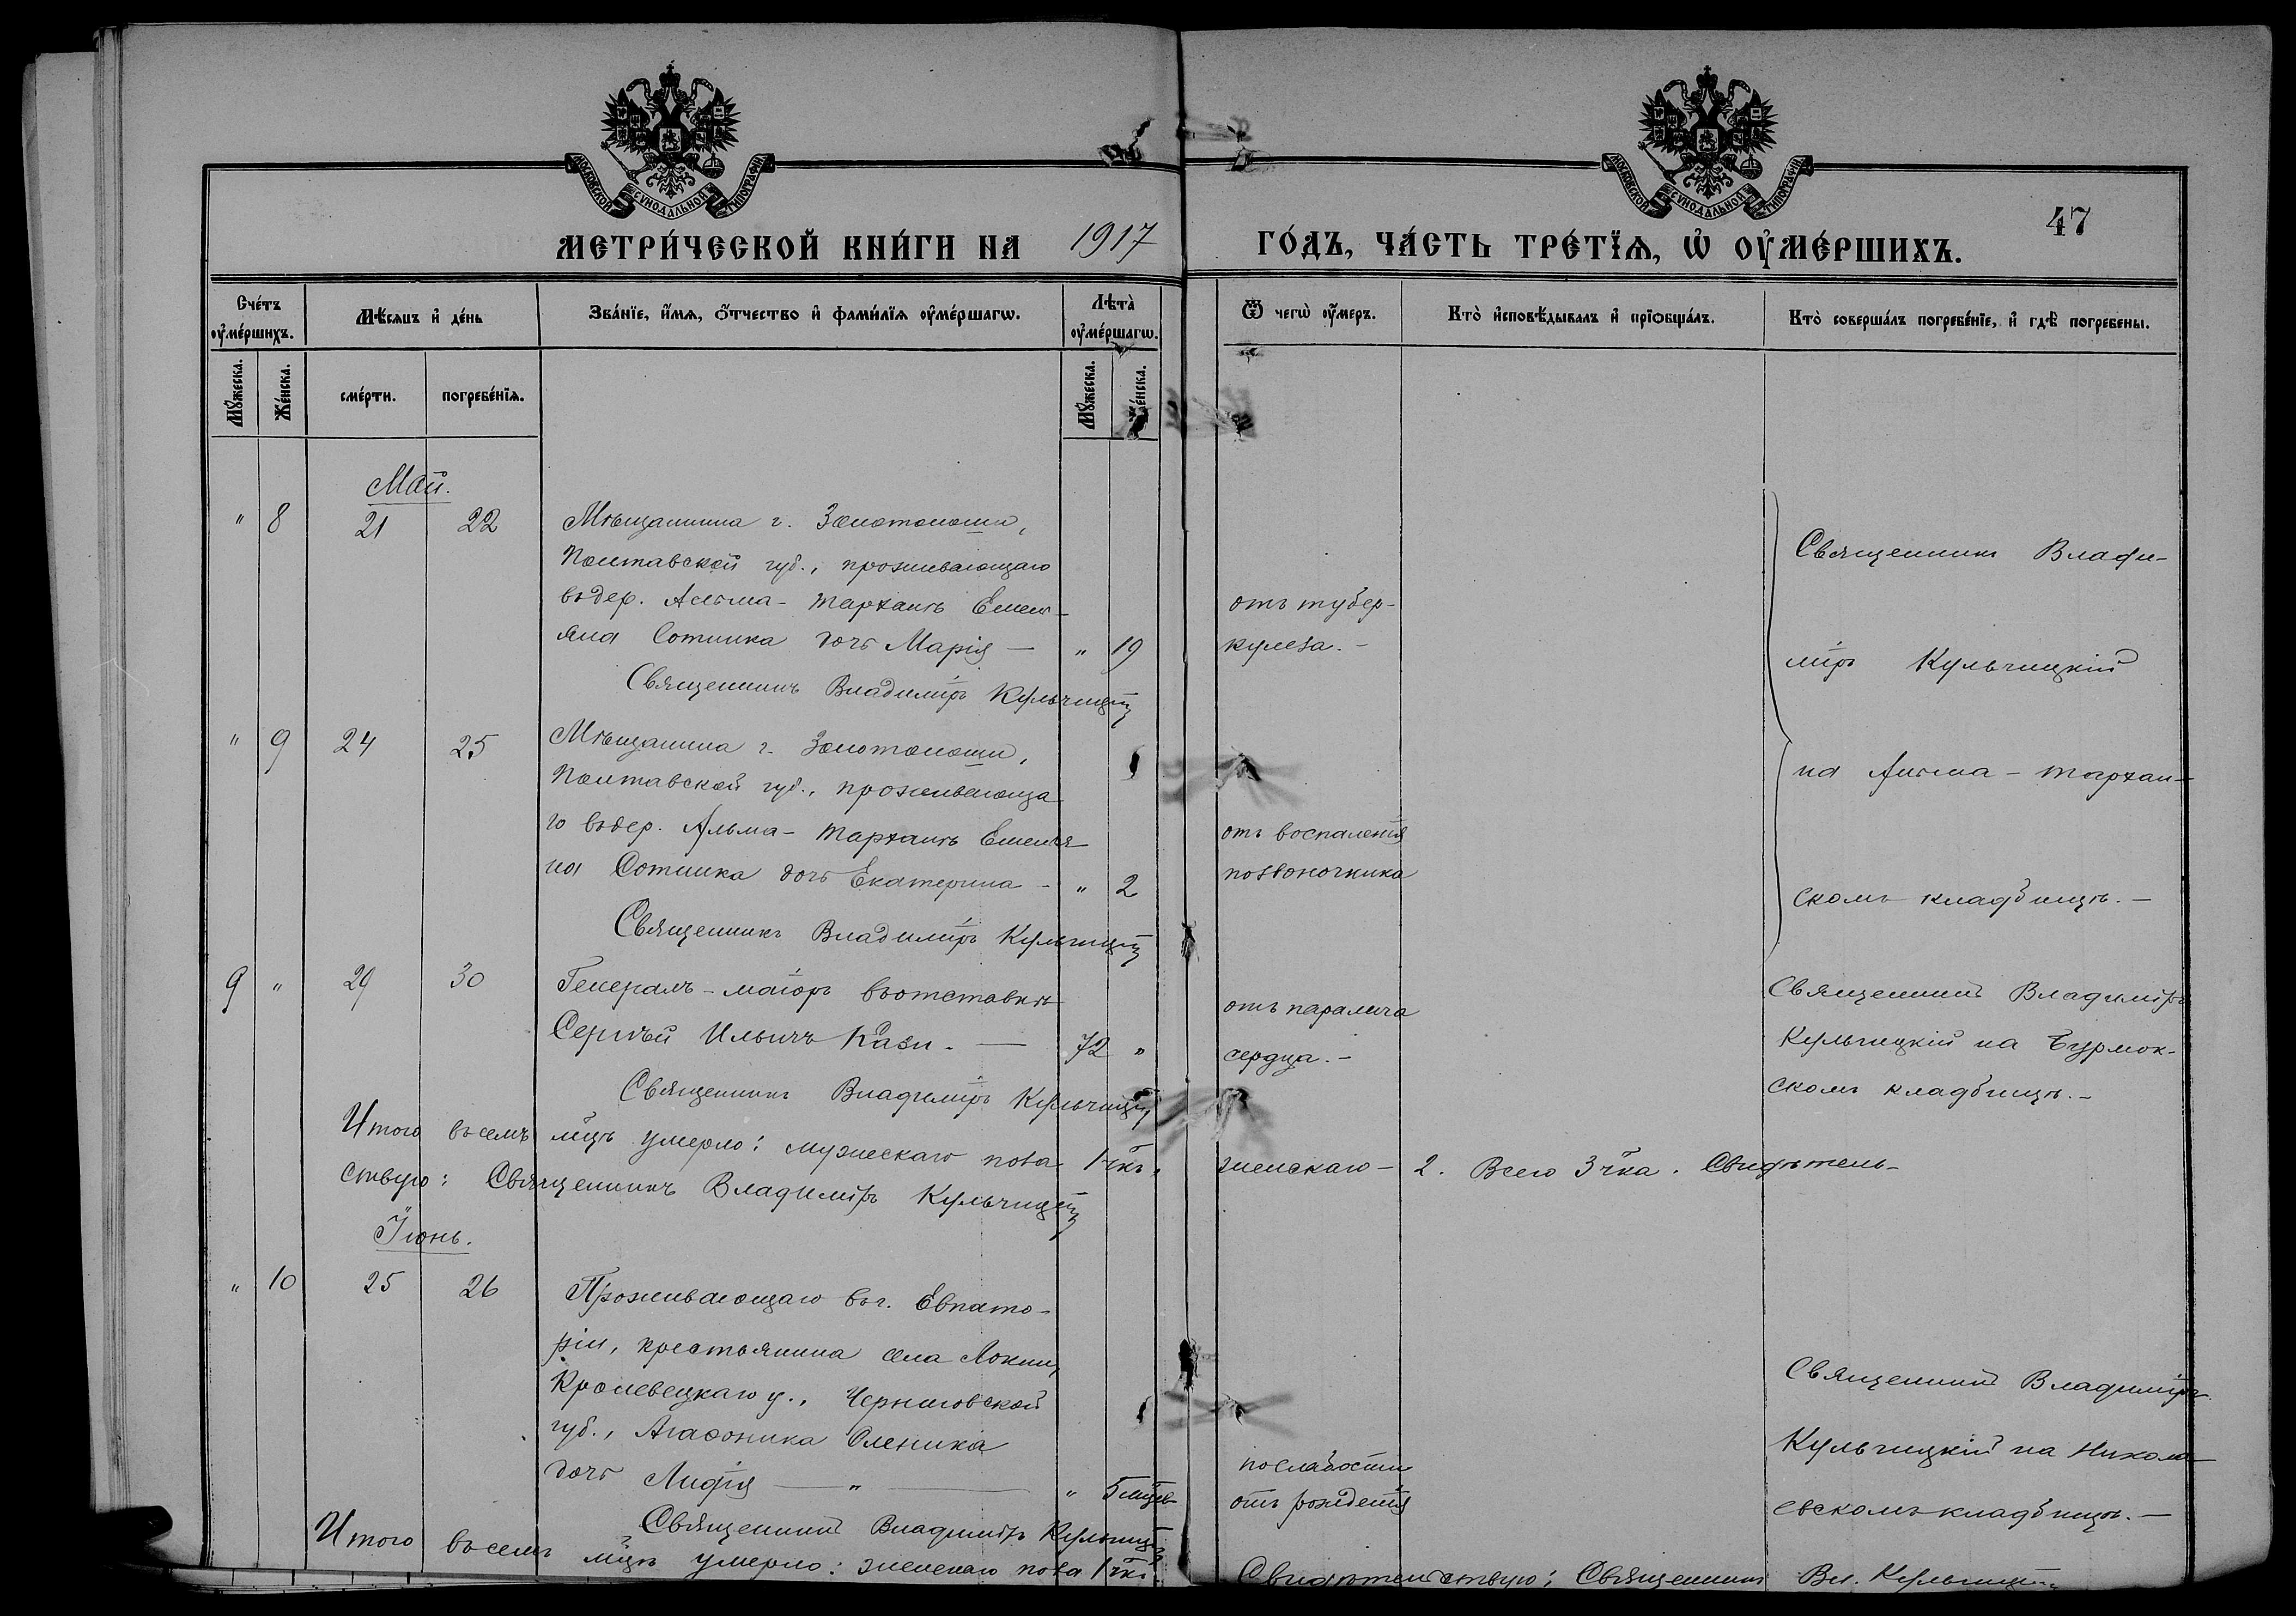 МОСКОВСКОЙ СѴНОДАЛЬНОЙ ТИПОГРАФІИ
МОСКОВСКОЙ СѴНОДАЛЬНОЙ ТИПОГРАФІИ
47
МЕТРИ́ЧЕСКОЙ КНИ́ГИ НА 1917 ГО́ДЪ, ЧА́СТЬ ТРЕ́ТЇѦ, Ѡ҆ ОУ҆МЕ́РШИХЪ.
Сче́тъ оу҆ме́ршихъ.
Мѣ́сѧцъ и҆ де́нь
Зва́нїе, и҆́мѧ, ѻ҆́тчество и҆ фамі́лїѧ оу҆ме́ршагѡ.
Лѣ́та̀ оу҆ме́ршагѡ.
Ѿ чегѡ̀ оу҆́меръ.
Кто̀ и҆сповѣ́дывалъ и҆ прїѻбща́лъ.
Кто̀ соверша́лъ погребе́нїе, и҆ гдѣ̀ погребены.
Мꙋ́жеска.
Же́нска.
сме́рти.
погребе́нїѧ.
Мꙋ́жеска.
Же́нска.
Май.
" 8 21 22 Мѣщанина г. Золотоноши,
Полтавской губ., проживающаго
въ дер. Альма-Тарханъ Емель-
яна Сотника дочь Марія — " 19
Священникъ Владиміръ Кульчицкій
отъ тубер-
кулеза. -
Священникъ Влади-
міръ Кульчицкій
" 9 24 25 Мѣщанина г. Золотоноши,
Полтавской губ., проживающа-
го въ дер. Альма-Тарханъ Емелья-
на Сотника дочь Екатерина - " 2
Священникъ Владиміръ Кульчицкій
отъ воспаленія
позвоночника
на Альма-Тархан-
скомъ кладбищѣ. —
9 " 29 30 Генералъ-маіоръ въ отставкѣ
Сергѣй Ильичъ Кази. — 72 "
Священникъ Владиміръ Кульчицкій
отъ паралича
сердца. -
Священникъ Владиміръ
Кульчицкій на Бурлюк-
скомъ кладбищѣ. -
Итого въ семъ мцѣ умерло: мужескаго пола 1 чкъ, женскаго - 2. Всего 3 чка. Свидѣтель-
ствую: Священникъ Владиміръ Кульчицкій
Іюнь.
" 10 25 26 Проживающаго въ г. Евпато-
ріи, крестьянина села Локни,
Кролевецкаго у., Черниговской
губ., Агаѳоника Оленика
дочь Лидія — " — " 5 мцев
Священникъ Владиміръ Кульчицкій
по слабости
отъ рожденія
Священникъ Владиміръ
Кульчицкій на Никола-
евскомъ кладбищѣ. —
Итого въ семъ мцѣ умерло: женскаго пола 1 чкъ. Свидѣтельствую: Священникъ Вл. Кульчицкій